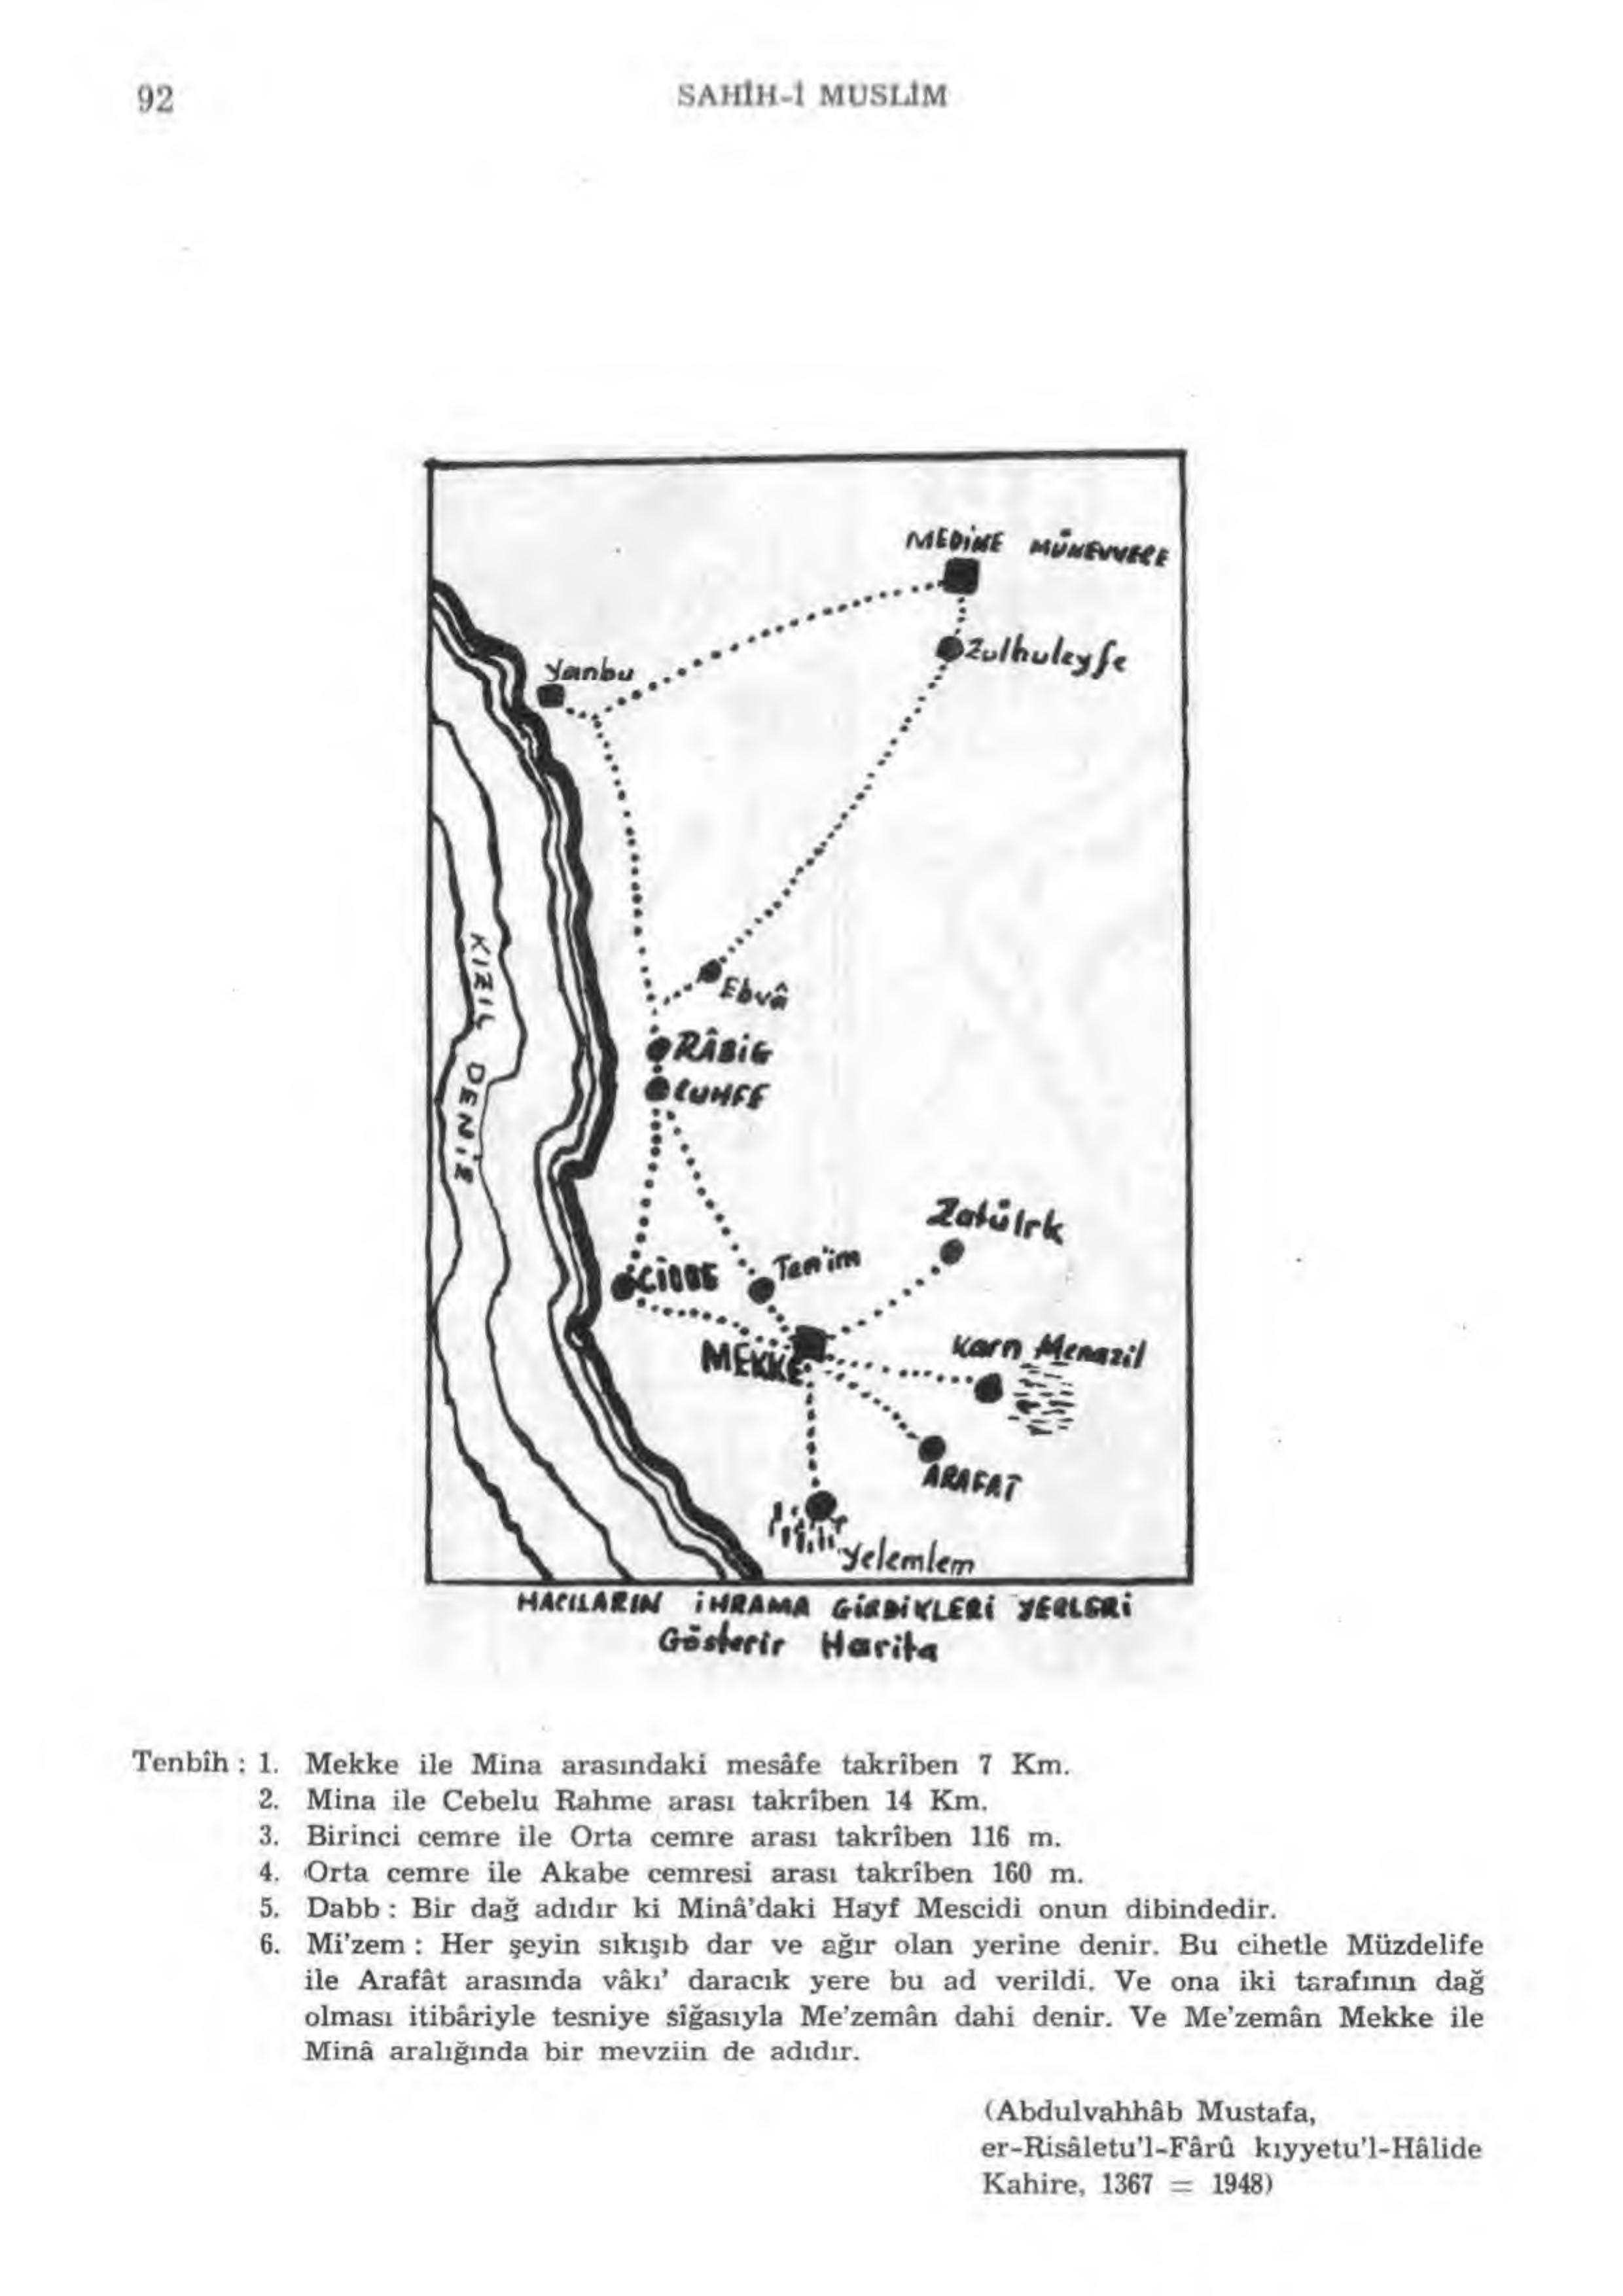 92
SAHÎH-İ MUSLİM
MEDİNE MÜNEVVERE
Zulhuleyfe
Yanbu
Ebvâ
RÂBİG
CUHFE
KIZIL DENİZ
Zatülrk
CİDDE
Ten'im
MEKKE
Karn Menazil
ARAFAT
Yelemlem
HACILARIN İHRAMA GİRDİKLERİ YERLERİ
Gösterir Harita
Tenbîh : 1. Mekke ile Mina arasındaki mesâfe takrîben 7 Km.
2. Mina ile Cebelu Rahme arası takrîben 14 Km.
3. Birinci cemre ile Orta cemre arası takrîben 116 m.
4. Orta cemre ile Akabe cemresi arası takrîben 160 m.
5. Dabb : Bir dağ adıdır ki Minâ'daki Hayf Mescidi onun dibindedir.
6. Mi'zem : Her şeyin sıkışıb dar ve ağır olan yerine denir. Bu cihetle Müzdelife
ile Arafât arasında vâkı' daracık yere bu ad verildi. Ve ona iki tarafının dağ
olması itibâriyle tesniye sîğasıyla Me'zemân dahi denir. Ve Me'zemân Mekke ile
Minâ aralığında bir mevziin de adıdır.
(Abdulvahhâb Mustafa,
er-Risâletu'l-Fârû kıyyetu'l-Hâlide
Kahire, 1367 = 1948)